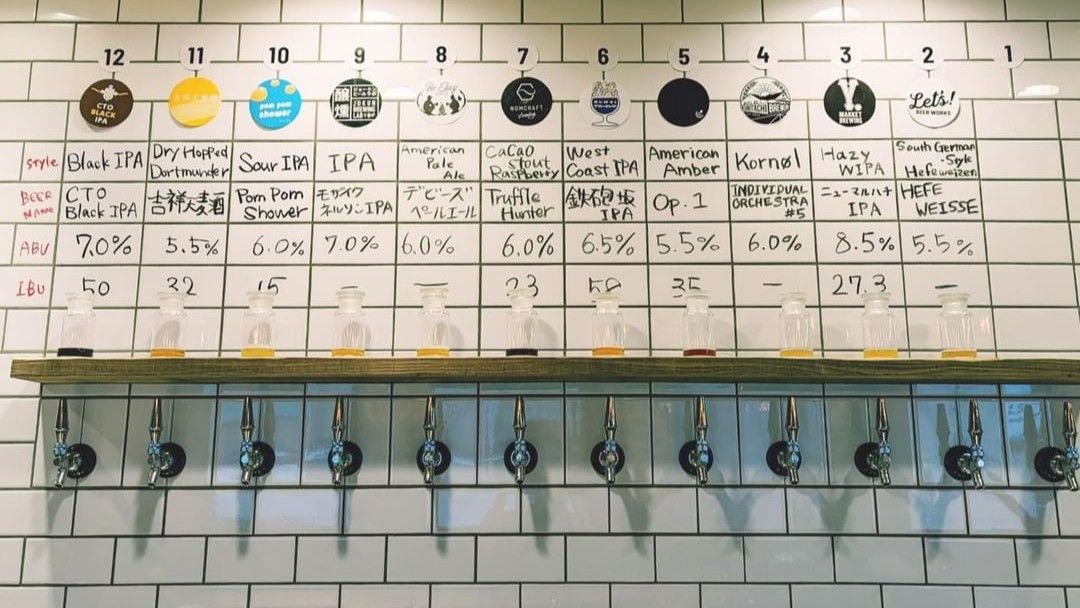 12 11 10 9 8 7 6 5 4 3 2 1
CTO
BLACK
IPA
pom pom
shower
醸
NOMCRAFT
Y.
MARKET
BREWING
Let's!
BEER WORKS
STYLE
Black IPA
Dry Hopped
Dortmunder
Sour IPA
IPA
American
Pale
Ale
CaCao
Stout
Raspberry
West
Coast IPA
American
Amber
Kornøl
Hazy
WIPA
South German
-Style
Hefeweizen
BEER
NAME
CTO
Black IPA
吉祥大麦酒
Pom Pom
Shower
モザイク
ネルソンIPA
デビーズ
ペールエール
Truffle
Hunter
鉄砲坂
IPA
Op. 1
INDIVIDUAL
ORCHESTRA
#5
ニューマルハチ
IPA
HEFE
WEISSE
ABU 7.0% 5.5% 6.0% 7.0% 6.0% 6.0% 6.5% 5.5% 6.0% 8.5% 5.5%
IBU 50 32 15 — — 23 50 35 — 27.3 —